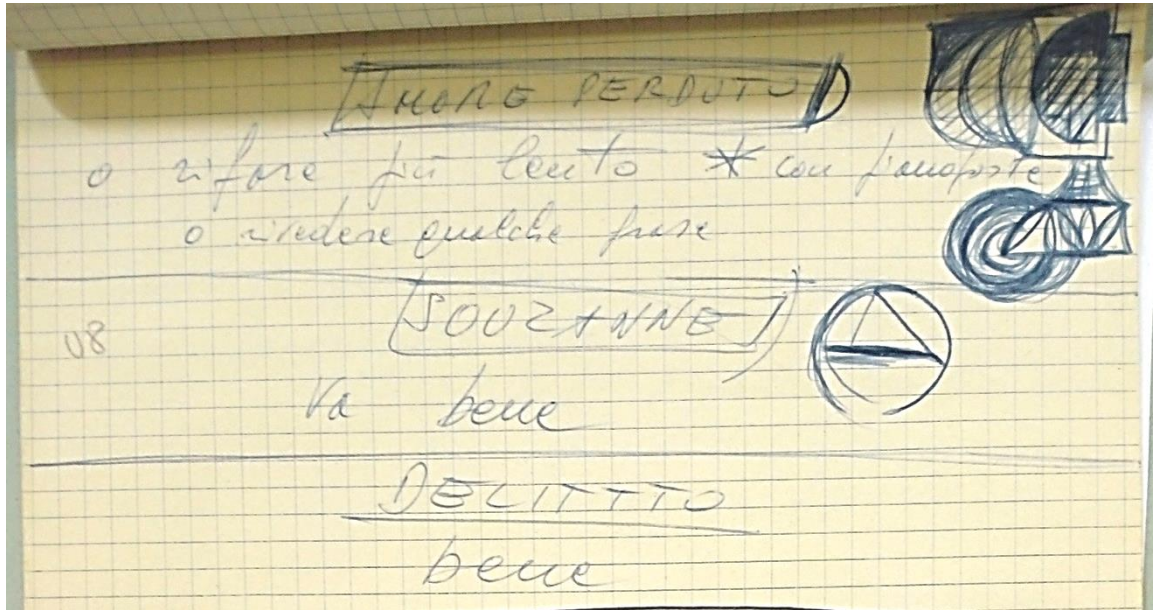 AMORE PERDUTO
o rifare più lento * con pianoforte
o rivedere qualche frase
SOUZANNE
U8
Va bene
DELITTTO
bene